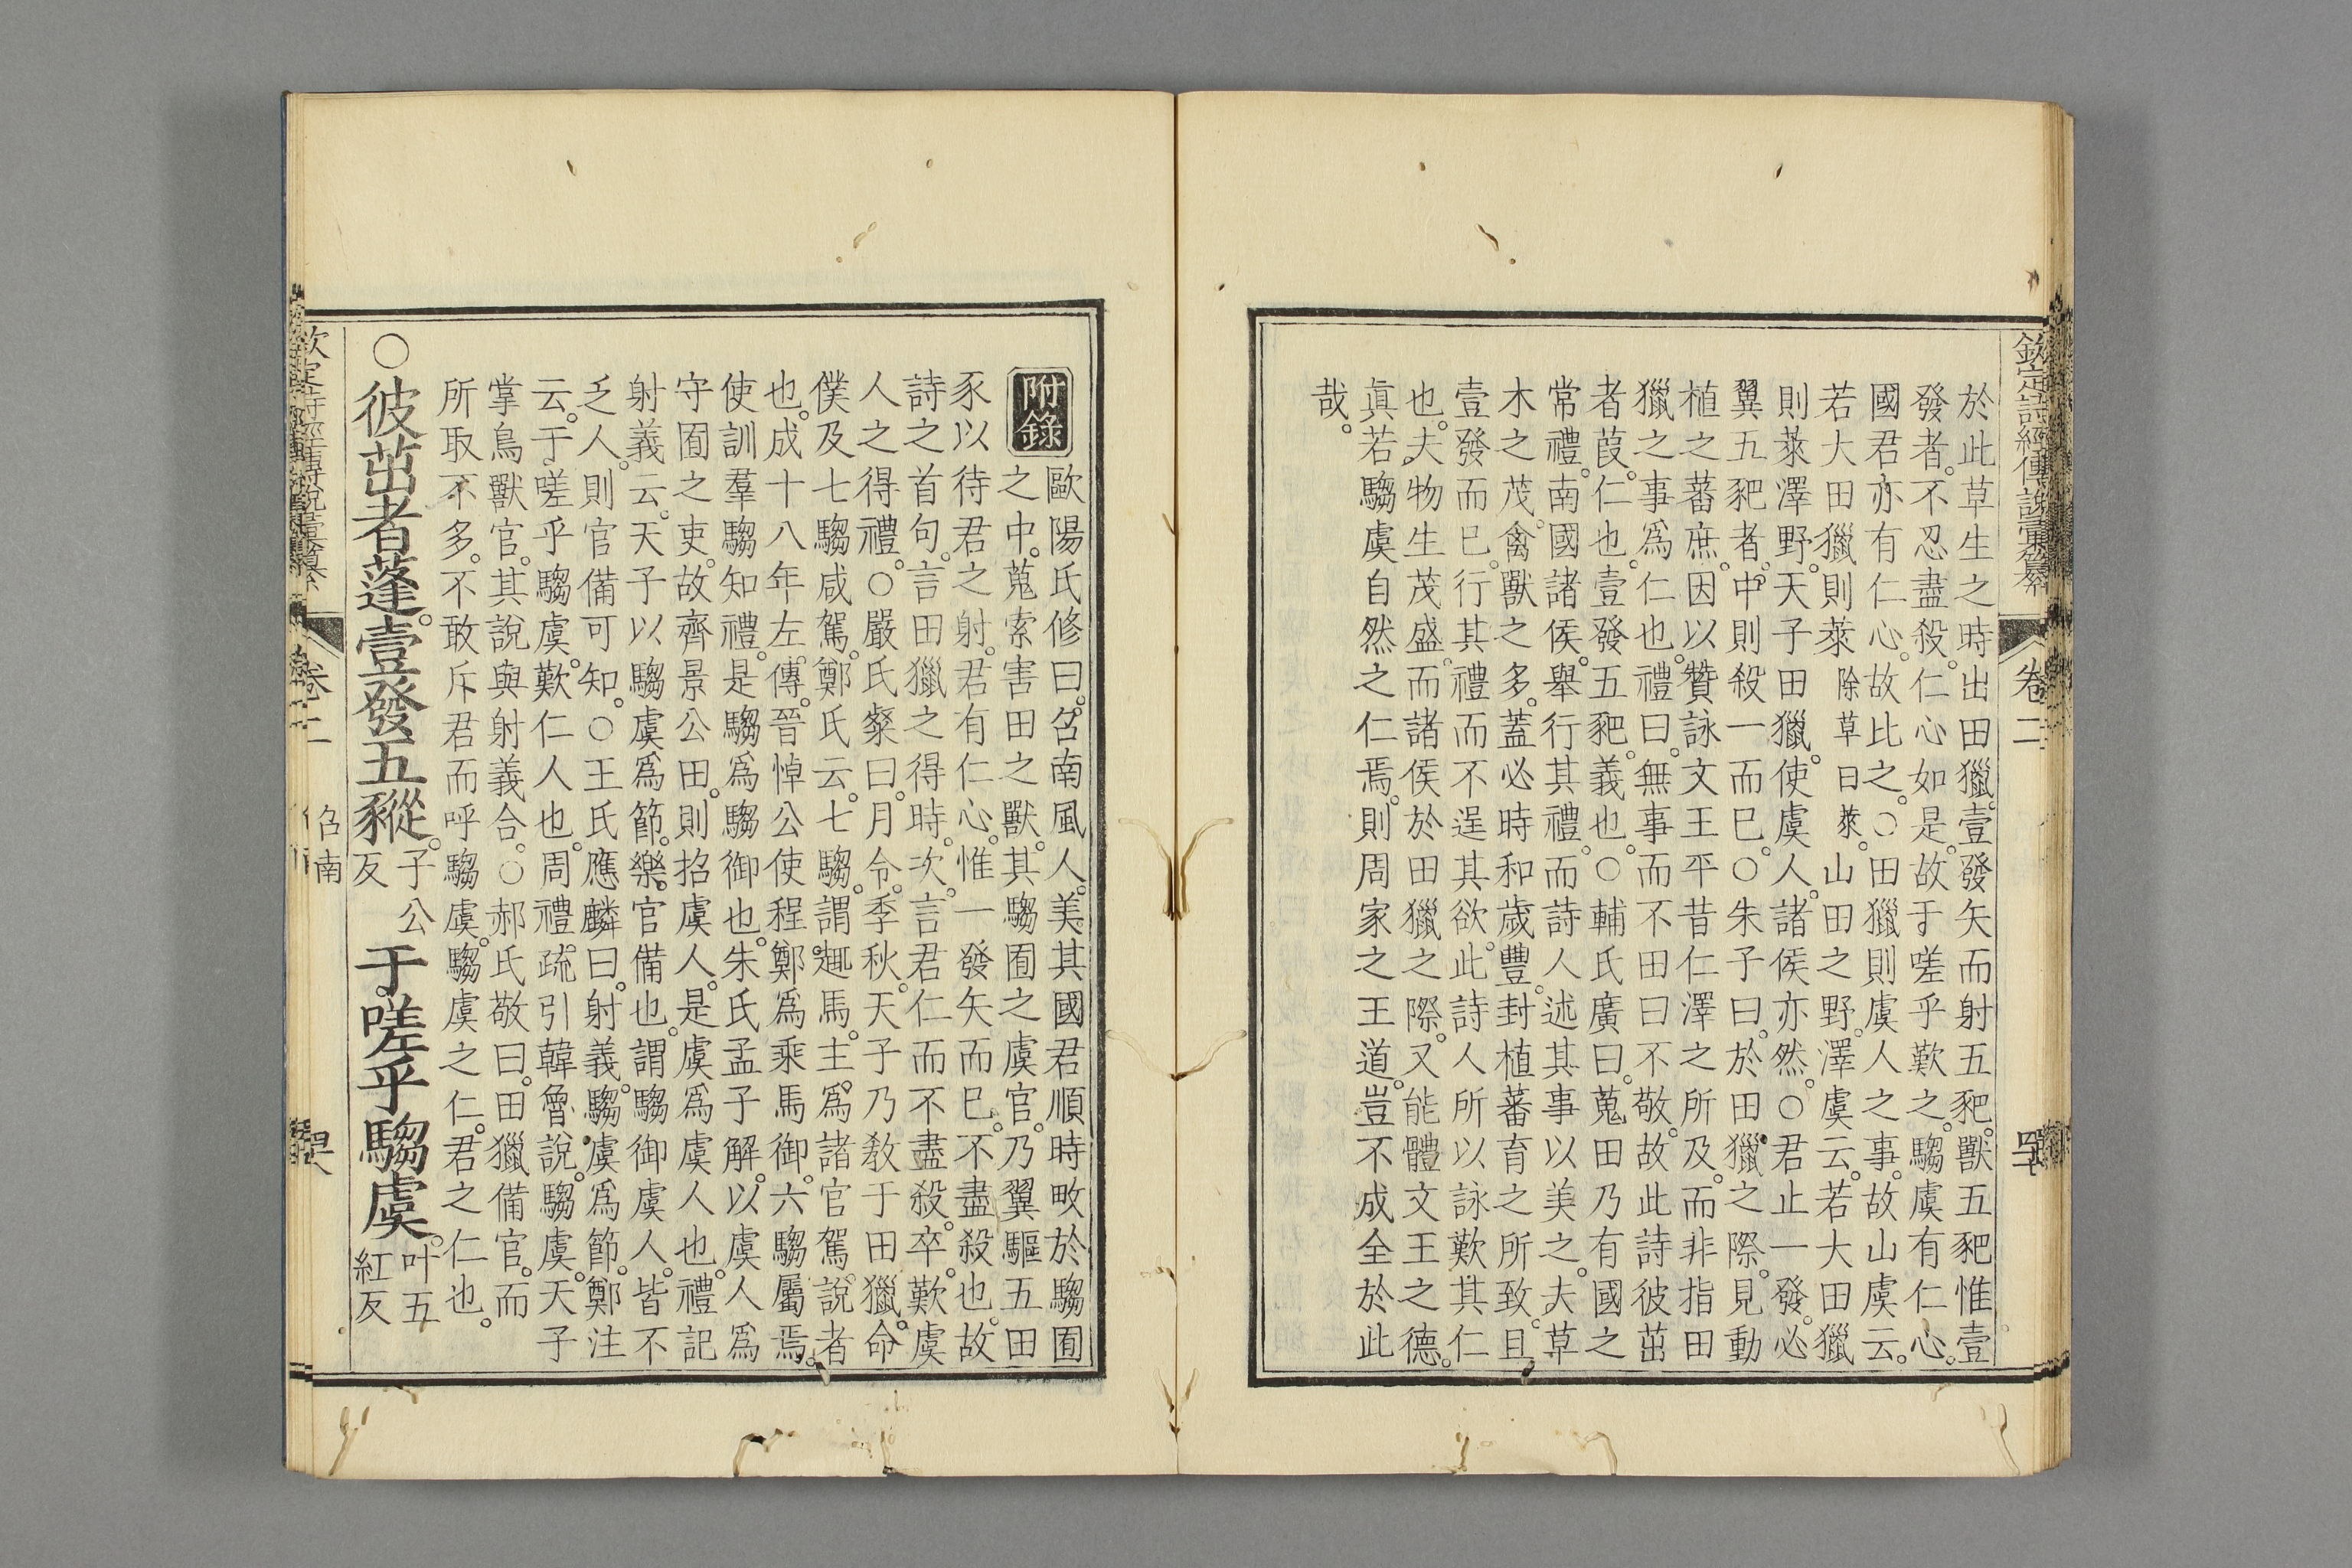 欽定詩經傳說彙纂　卷二
於此草生之時出田獵壹發矢而射五豝獸五豝惟壹
發者不忍盡殺仁心如是故于嗟乎歎之騶虞有仁心
國君亦有仁心故比之○田獵則虞人之事故山虞云
若大田獵則萊除草曰萊山田之野澤虞云若大田獵
則萊澤野天子田獵使虞人諸侯亦然○君止一發必
翼五豝者中則殺一而已○朱子曰於田獵之際見動
植之蕃庶因以贊詠文王平昔仁澤之所及而非指田
獵之事爲仁也禮曰無事而不田曰不敬故此詩彼茁
者葭仁也壹發五豝義也○輔氏廣曰蒐田乃有國之
常禮南國諸侯舉行其禮而詩人述其事以美之夫草
木之茂禽獸之多蓋必時和歲豐封植蕃育之所致且
壹發而已行其禮而不逞其欲此詩人所以詠歎其仁
也夫物生茂盛而諸侯於田獵之際又能體文王之德
眞若騶虞自然之仁焉則周家之王道豈不成全於此
哉
附錄　歐陽氏修曰召南風人美其國君順時畋於騶囿
之中蒐索害田之獸其騶囿之虞官乃翼驅五田
豕以待君之射君有仁心惟一發矢而已不盡殺也故
詩之首句言田獵之得時次言君仁而不盡殺卒歎虞
人之得禮○嚴氏粲曰月令季秋天子乃敎于田獵命
僕及七騶咸駕鄭氏云七騶謂趣馬主爲諸官駕說者
也成十八年左傳晉悼公使程鄭爲乘馬御六騶屬焉
使訓羣騶知禮是騶爲騶御也朱氏孟子解以虞人爲
守囿之吏故齊景公田則招虞人是虞爲虞人也禮記
射義云天子以騶虞爲節樂官備也謂騶御虞人皆不
乏人則官備可知○王氏應麟曰射義騶虞爲節鄭注
云于嗟乎騶虞歎仁人也周禮疏引韓魯說騶虞天子
掌鳥獸官其說與射義合○郝氏敬曰田獵備官而
所取不多不敢斥君而呼騶虞騶虞之仁君之仁也
○彼茁者蓬壹發五豵子公反于嗟乎騶虞叶五紅反
卷二　召南